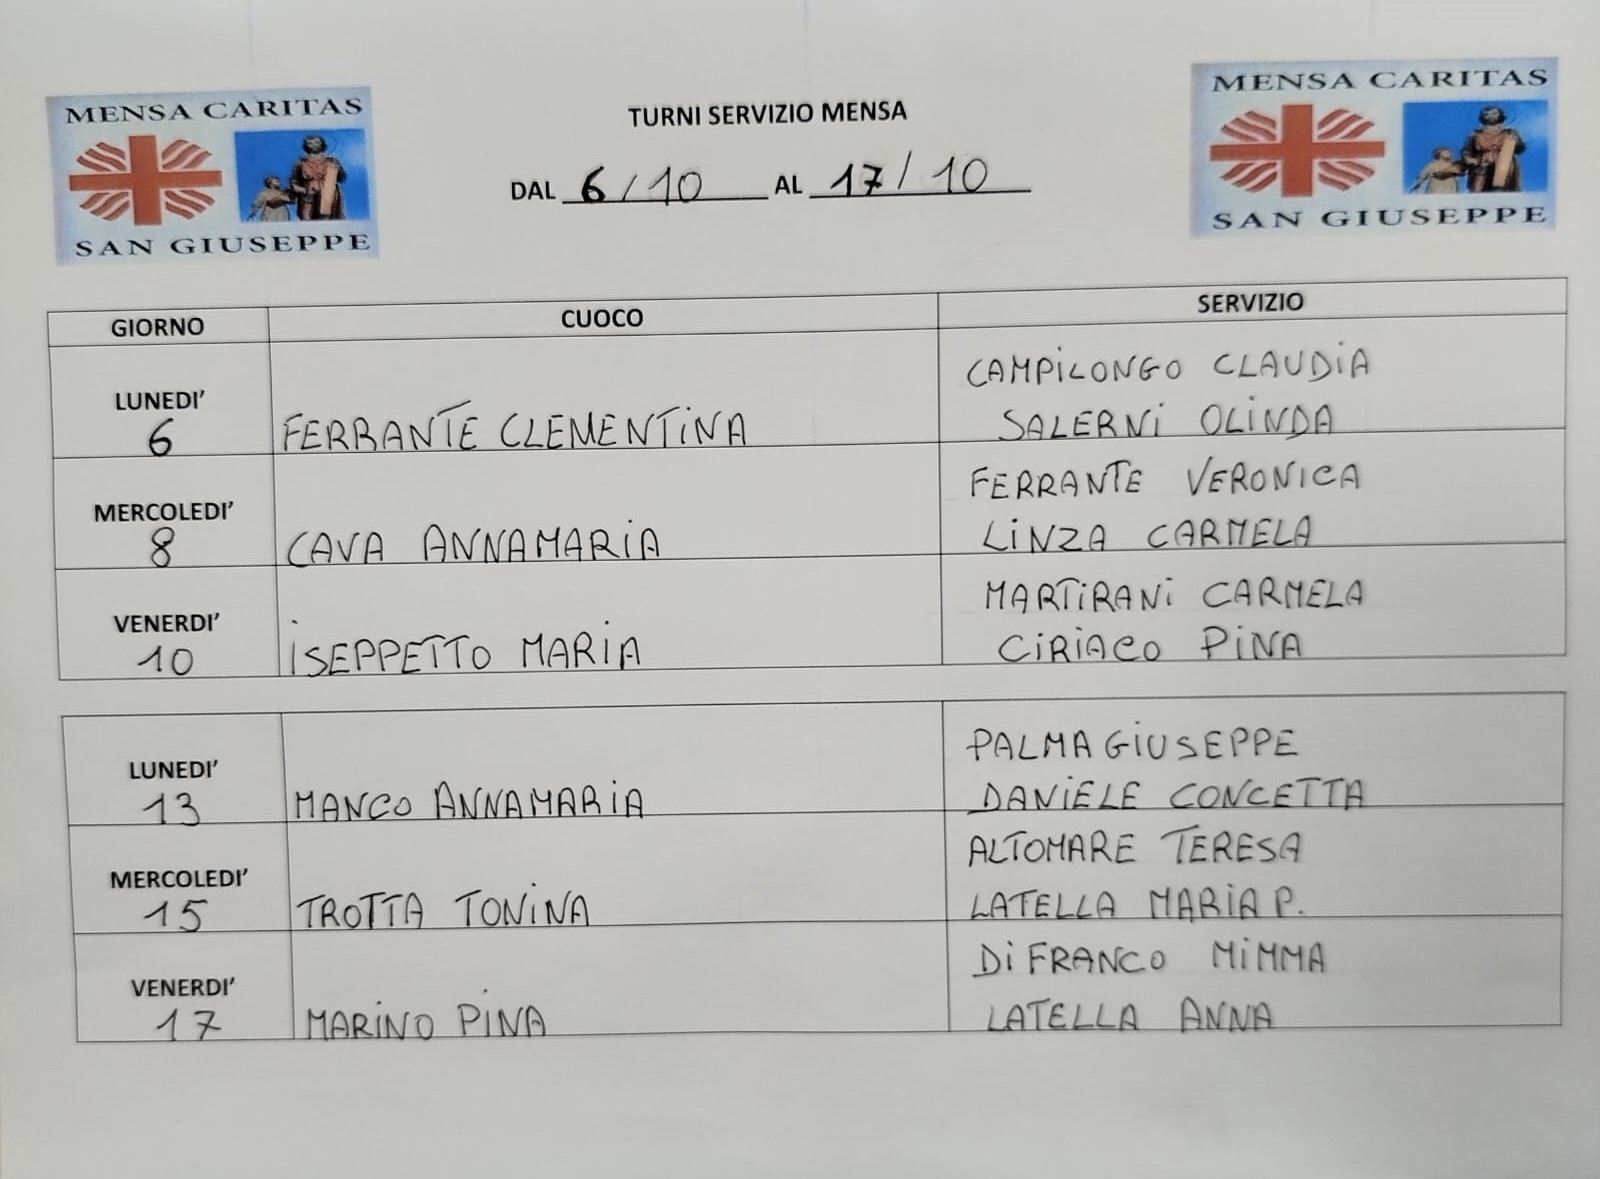 MENSA CARITAS
SAN GIUSEPPE
TURNI SERVIZIO MENSA
DAL 6/10 AL 17/10
MENSA CARITAS
SAN GIUSEPPE
GIORNO CUOCO SERVIZIO
LUNEDI'
6
FERRANTE CLEMENTINA
CAMPILONGO CLAUDIA
SALERNI OLINDA
MERCOLEDI'
8
CAVA ANNAMARIA
FERRANTE VERONICA
LINZA CARMELA
VENERDI'
10
ISEPPETTO MARIA
MARTIRANI CARMELA
CIRIACO PINA
LUNEDI'
13
MANCO ANNAMARIA
PALMA GIUSEPPE
DANIELE CONCETTA
MERCOLEDI'
15
TROTTA TONINA
ALTOMARE TERESA
LATELLA MARIA P.
VENERDI'
17
MARINO PINA
DI FRANCO MIMMA
LATELLA ANNA